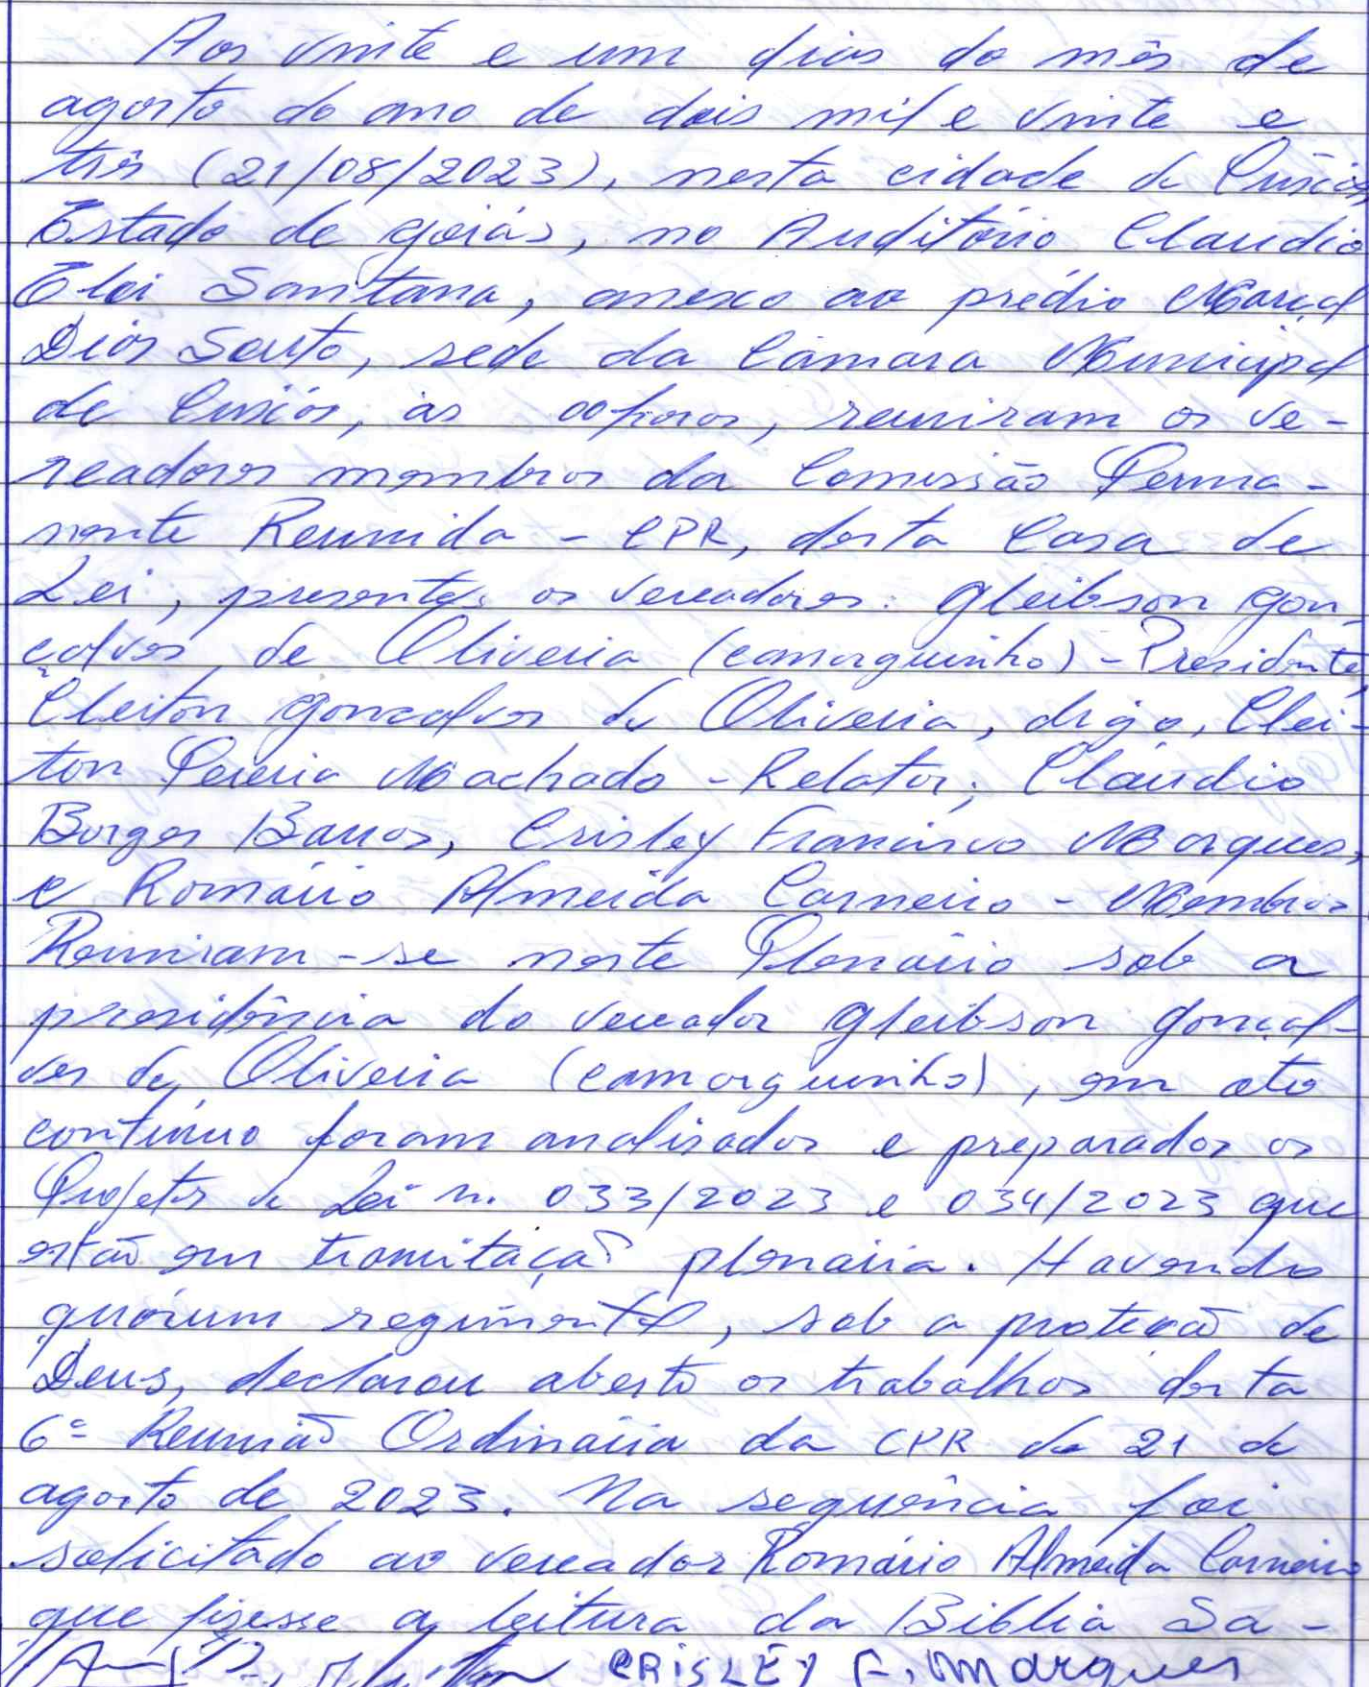 Aos vinte e um dias do mês de
agosto do ano de dois mil e vinte e
três (21/08/2023), nesta cidade de
Estado de Goiás, no Auditório Claudio
Eloi Santana, anexo ao prédio Marçal
Dias Souto, sede da Câmara Municipal
de, às horas, reuniram os ve-
readores membros da Comissão Perma-
nente Reunida - CPR, desta Casa de
Lei, presentes os vereadores: Gleibson Gon
çalves de Oliveira (camarguinho) - Presidente,
Cleiton Gonçalves de Oliveira, digo, Clei-
ton Pereira Machado - Relator; Cláudio
Borges Barros, Crisley Francisco Marques,
e Romário Almeida Carneiro - Membros
Reuniram-se neste Plenário sob a
presidência do vereador Gleibson Gonçal-
ves de Oliveira (camarguinho), em ato
contínuo foram analisados e preparados os
Projetos de Lei n. 033/2023 e 034/2023 que
estão em tramitação plenária. Havendo
quórum regimental, sob a proteção de
Deus, declarou aberto os trabalhos desta
6ª Reunião Ordinária da CPR de 21 de
agosto de 2023. Na sequência foi
solicitado ao vereador Romário Almeida Carneiro
que fizesse a leitura da Bíblia Sa-
CRISLEY F. Marques